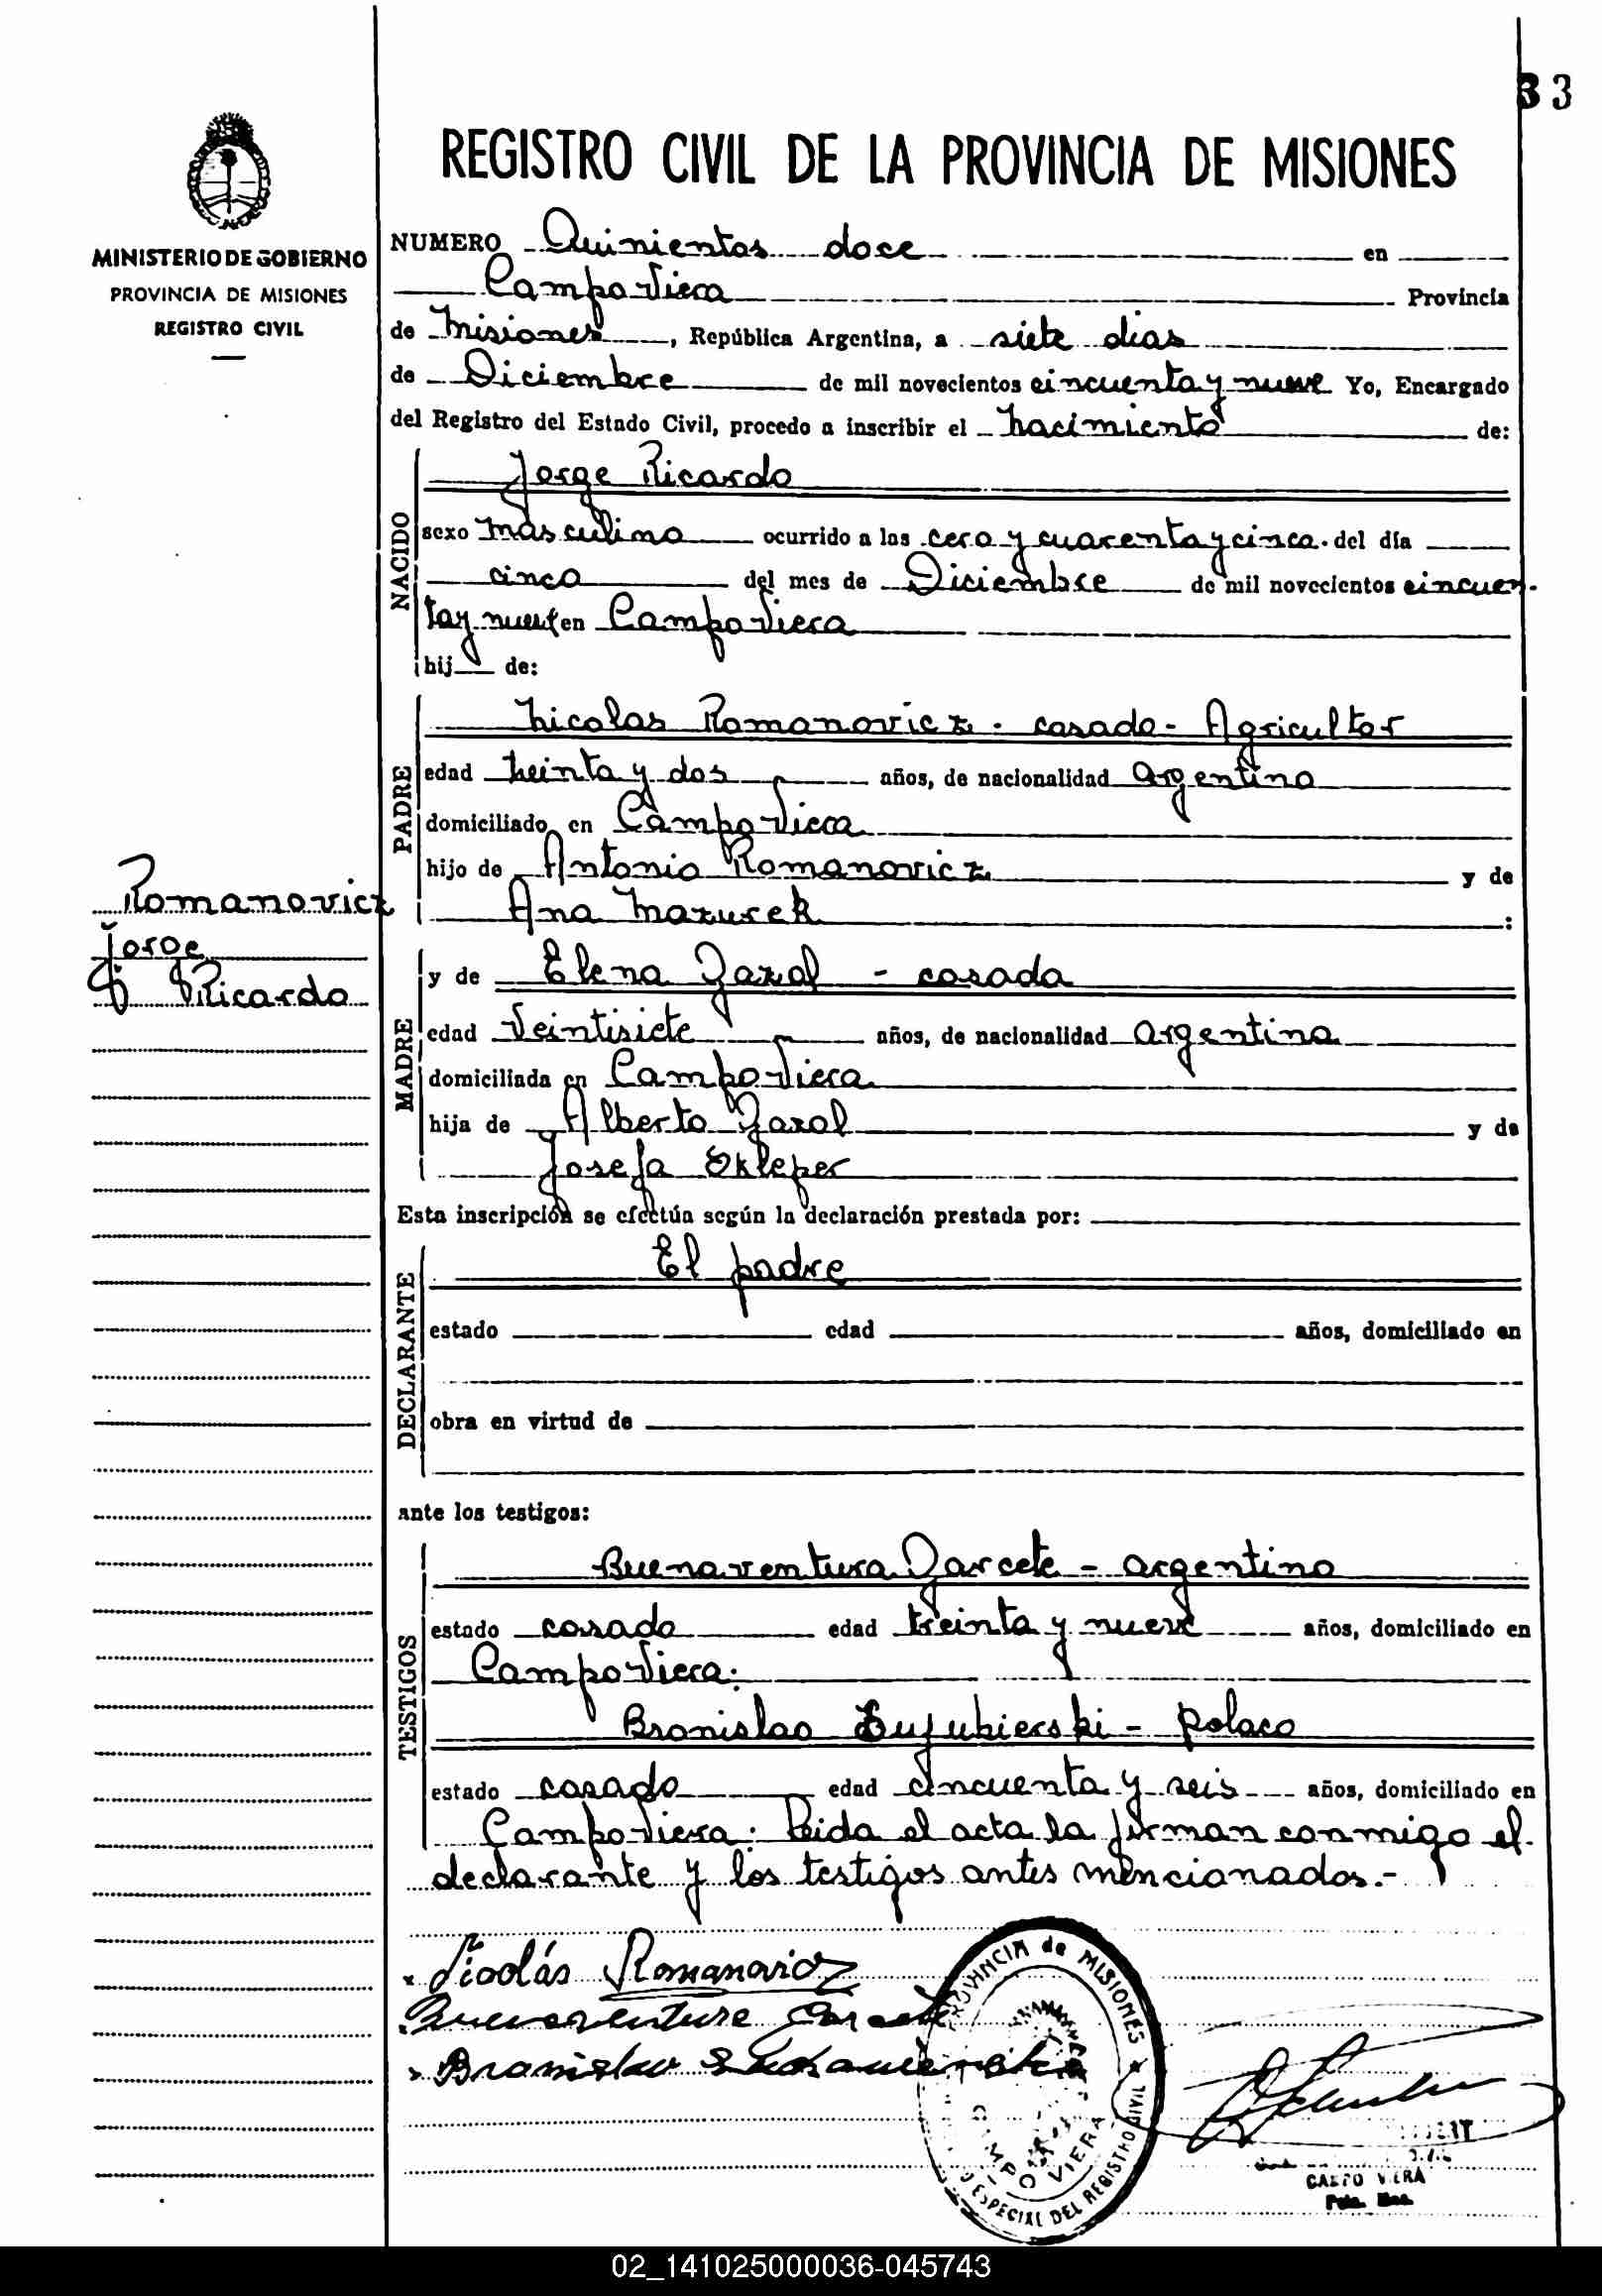 33
REGISTRO CIVIL DE LA PROVINCIA DE MISIONES
MINISTERIO DE GOBIERNO
PROVINCIA DE MISIONES
REGISTRO CIVIL
NUMERO Quinientos doce en
Campo Viera Provincia
de Misiones, República Argentina, a siete dias
de Diciembre de mil novecientos cincuenta y nueve Yo, Encargado
del Registro del Estado Civil, procedo a inscribir el nacimiento de:
NACIDO
Jorge Ricardo
sexo masculino ocurrido a las cero y cuarenta y cinco. del día
cinco del mes de Diciembre de mil novecientos cincuen-
ta y nueve en Campo Viera
hij de:
PADRE
Nicolas Romanovicz - casado - Agricultor
edad treinta y dos años, de nacionalidad argentino
domiciliado en Campo Viera
hijo de Antonio Romanovicz y de
Ana Mazurek :
Romanovicz
Jorge
Ricardo
MADRE
y de Elena Gazol - casada
edad Veintisiete años, de nacionalidad argentina
domiciliada en Campo Viera
hija de Alberto Gazol y de
Josefa Ekleper
Esta inscripción se efectúa según la declaración prestada por:
DECLARANTE
El padre
estado edad años, domiciliado en
obra en virtud de
ante los testigos:
TESTIGOS
Buenaventura Garcete - argentino
estado casado edad treinta y nueve años, domiciliado en
Campo Viera.
Bronislao - Polaco
estado casado edad cincuenta y seis años, domiciliado en
Campo Viera: Leida el acta la firman conmigo el
declarante y los testigos antes mencionados.-
Nicolás Romanovicz
Buenaventura Garcete
Bronislao
PROVINCIA de MISIONES
CAMPO VIERA
ESPECIAL DEL REGISTRO CIVIL
CAMPO VIERA
02_141025000036-045743